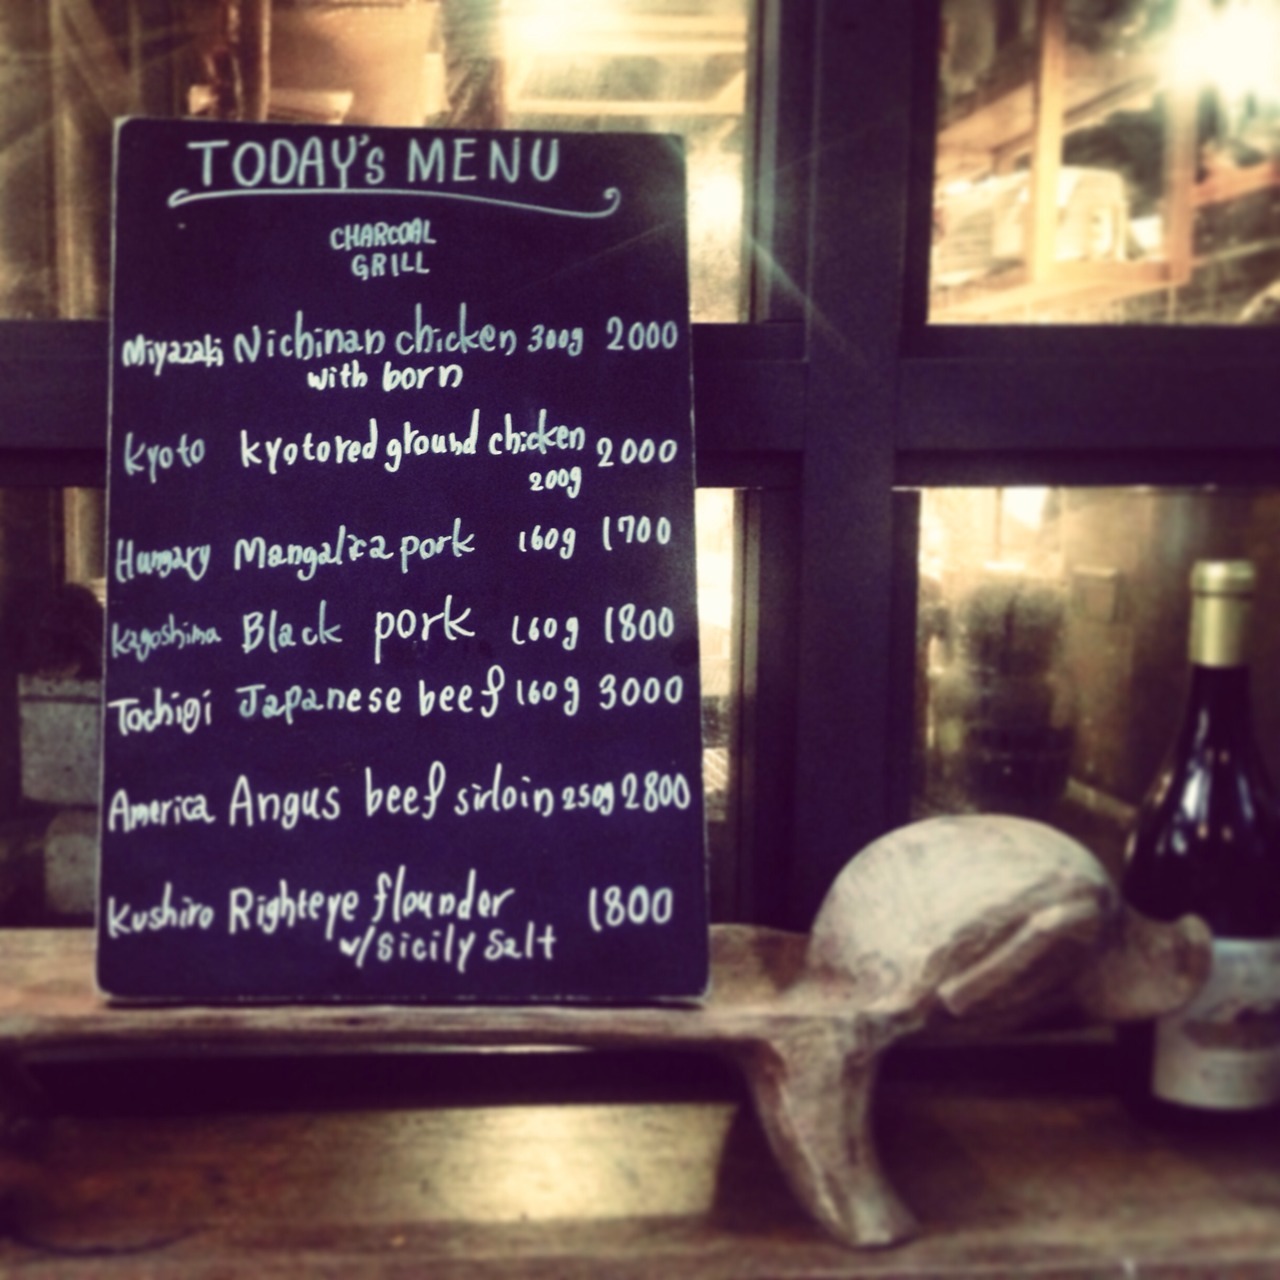 TODAY's MENU
CHARCOAL
GRILL
Miyazaki Nichinan chicken 300g 2000
with born
Kyoto kyotored ground chicken 2000
200g
Hungary Mangalica pork 160g 1700
Kagoshima Black pork 160g 1800
Tochigi Japanese beef 160g 3000
America Angus beef sirloin 250g 2800
Kushiro Righteye flounder 1800
w/sicily Salt